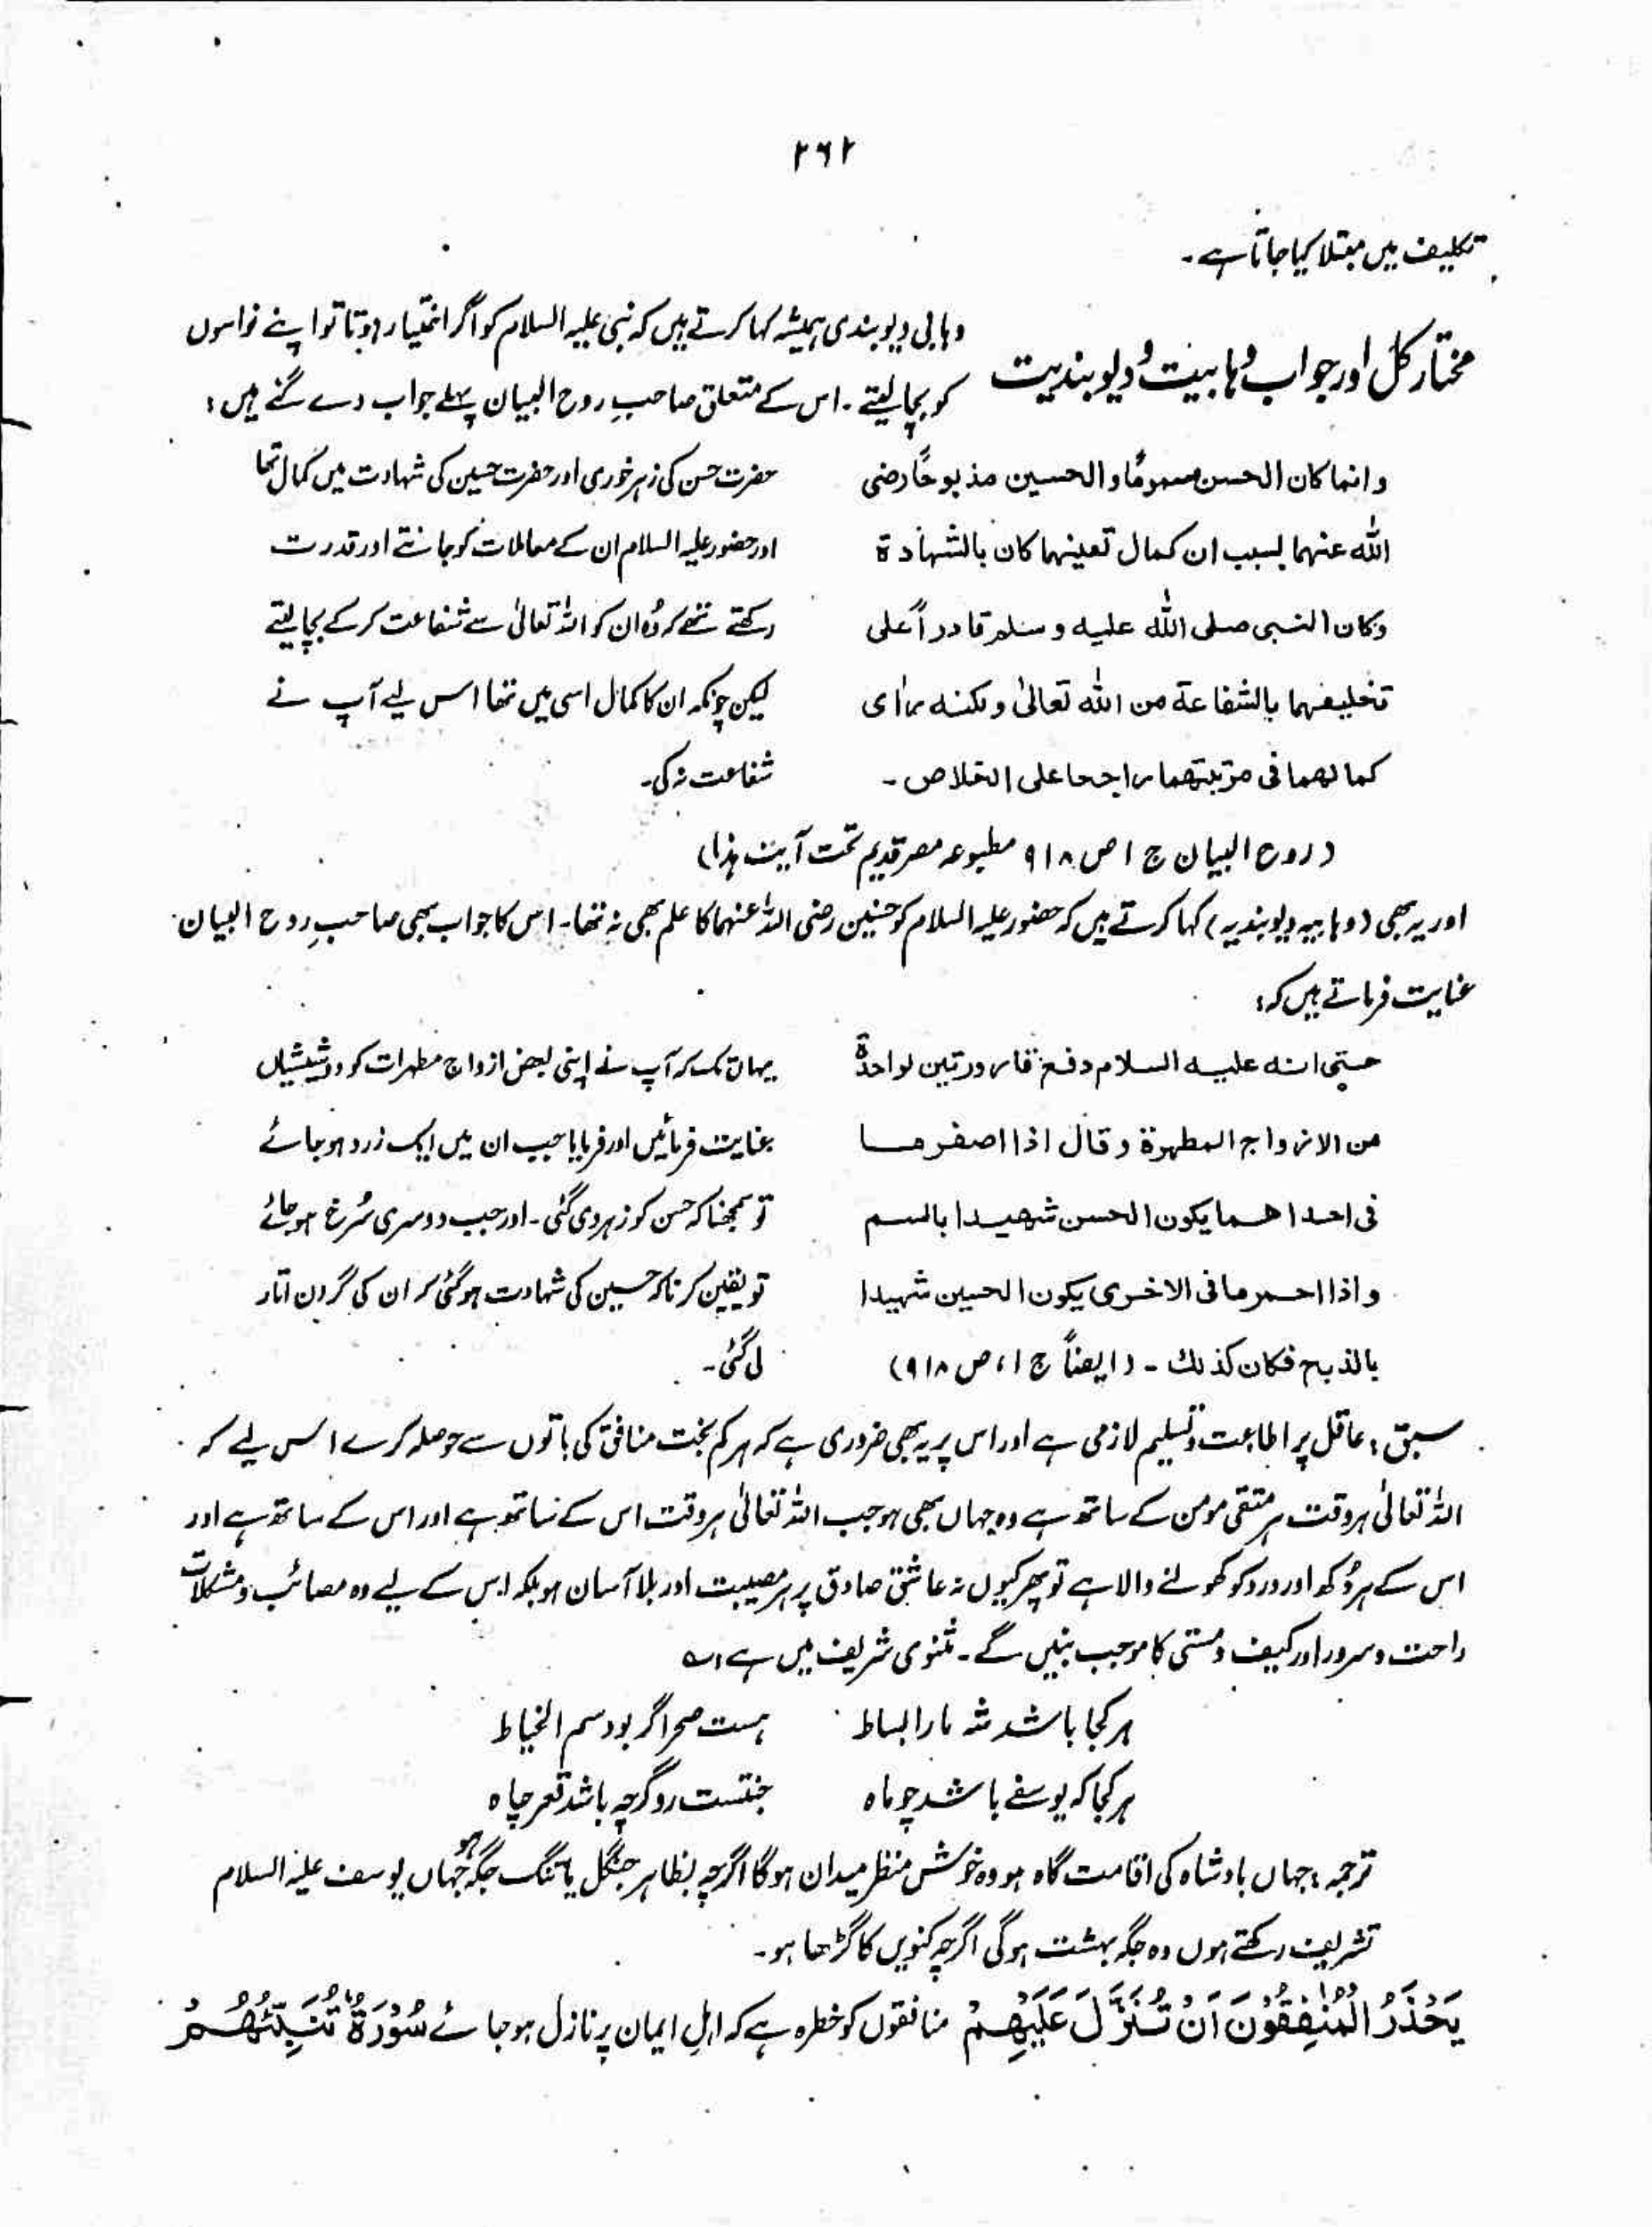 ۲۶۲
تکلیف میں مبتلا کیا جاتا ہے۔
مختارِ کل اور جواب وہابیت و دیوبندیت
وہابی دیوبندی ہمیشہ کہا کرتے ہیں کہ نبی علیہ السلام کو اگر اختیار ہوتا تو اپنے نواسوں
کو بچا لیتے۔ اس کے متعلق صاحبِ روح البیان پہلے جواب دے گئے ہیں:
وانما کان الحسن مسموماً والحسین مذبوحاً رضی
اللہ عنہما بسبب ان کمال تعینہما کان بالشہادة
وکان النبی صلی اللہ علیہ وسلم قادراً علی
تخلیصہما بالشفاعة من اللہ تعالیٰ ولکنہ رأی
کمالہما فی مرتبتہما راجحا علی الخلاص۔
حضرت حسن کی زہر خوری اور حضرت حسین کی شہادت میں کمال تھا
اور حضور علیہ السلام ان کے معاملات کو جانتے اور قدرت
رکھتے تھے کہ وُہ ان کو اللہ تعالیٰ سے شفاعت کر کے بچا لیتے
لیکن چونکہ ان کا کمال اسی میں تھا اس لیے آپ نے
شفاعت نہ کی۔
(روح البیان ج ۱ ص ۹۱۸ مطبوعہ مصر قدیم تحت آیت ہذا)
اور یہ بھی (وہابیہ دیوبندیہ) کہا کرتے ہیں کہ حضور علیہ السلام کو حسنین رضی اللہ عنہما کا علم بھی نہ تھا۔ اس کا جواب بھی صاحبِ روح البیان
عنایت فرماتے ہیں کہ:
حتی انہ علیہ السلام دفع قارورتین لواحدة
من الازواج المطہرة وقال اذا اصفر ما
فی احداھما یکون الحسن شھیدا بالسم
واذا احمر ما فی الاخری یکون الحسین شہیدا
بالذبح فکان کذلك۔ (ایضاً ج ۱، ص ۹۱۸)
یہاں تک کہ آپ نے اپنی بعض ازواجِ مطہرات کو دو شیشیاں
عنایت فرمائیں اور فرمایا جب ان میں ایک زرد ہو جائے
تو سمجھنا کہ حسن کو زہر دی گئی۔ اور جب دوسری سُرخ ہو جائے
تو یقین کرنا کہ حسین کی شہادت ہو گئی کہ ان کی گردن اتار
لی گئی۔
سبق: عاقل پر اطاعت و تسلیم لازمی ہے اور اس پر یہ بھی ضروری ہے کہ ہر کم بخت منافق کی باتوں سے حوصلہ کرے اس لیے کہ
اللہ تعالیٰ ہر وقت ہر متقی مومن کے ساتھ ہے وہ جہاں بھی ہو جب اللہ تعالیٰ ہر وقت اس کے ساتھ ہے اور اس کے ساتھ ہے اور
اس کے ہر دُکھ اور درد کو کھولنے والا ہے تو پھر کیوں نہ عاشق صادق پر ہر مصیبت اور بلا آسان ہو بلکہ اس کے لیے وہ مصائب و مشکلات
راحت و سرور اور کیف و مستی کا موجب بنیں گے۔ مثنوی شریف میں ہے، ؎
ہر کجا باشد شہ ما را بساط ہست صحرا گر بود سم الخیاط
ہر کجا کہ یوسفے باشد چو ماہ جنتست رو گرچہ باشد قعر چاہ
ترجمہ: جہاں بادشاہ کی اقامت گاہ ہو وہ خوش منظر میدان ہوگا اگرچہ بظاہر جنگل یا تنگ جگہ ہو جہاں یوسف علیہ السلام
تشریف رکھتے ہوں وہ جگہ بہشت ہوگی اگرچہ کنویں کا گڑھا ہو۔
یَحْذَرُ الْمُنٰفِقُوْنَ اَنْ تُنَزَّلَ عَلَیْھِمْ منافقوں کو خطرہ ہے کہ اہلِ ایمان پر نازل ہو جائے سُوْرَةٌ تُنَبِّئُھُمْ